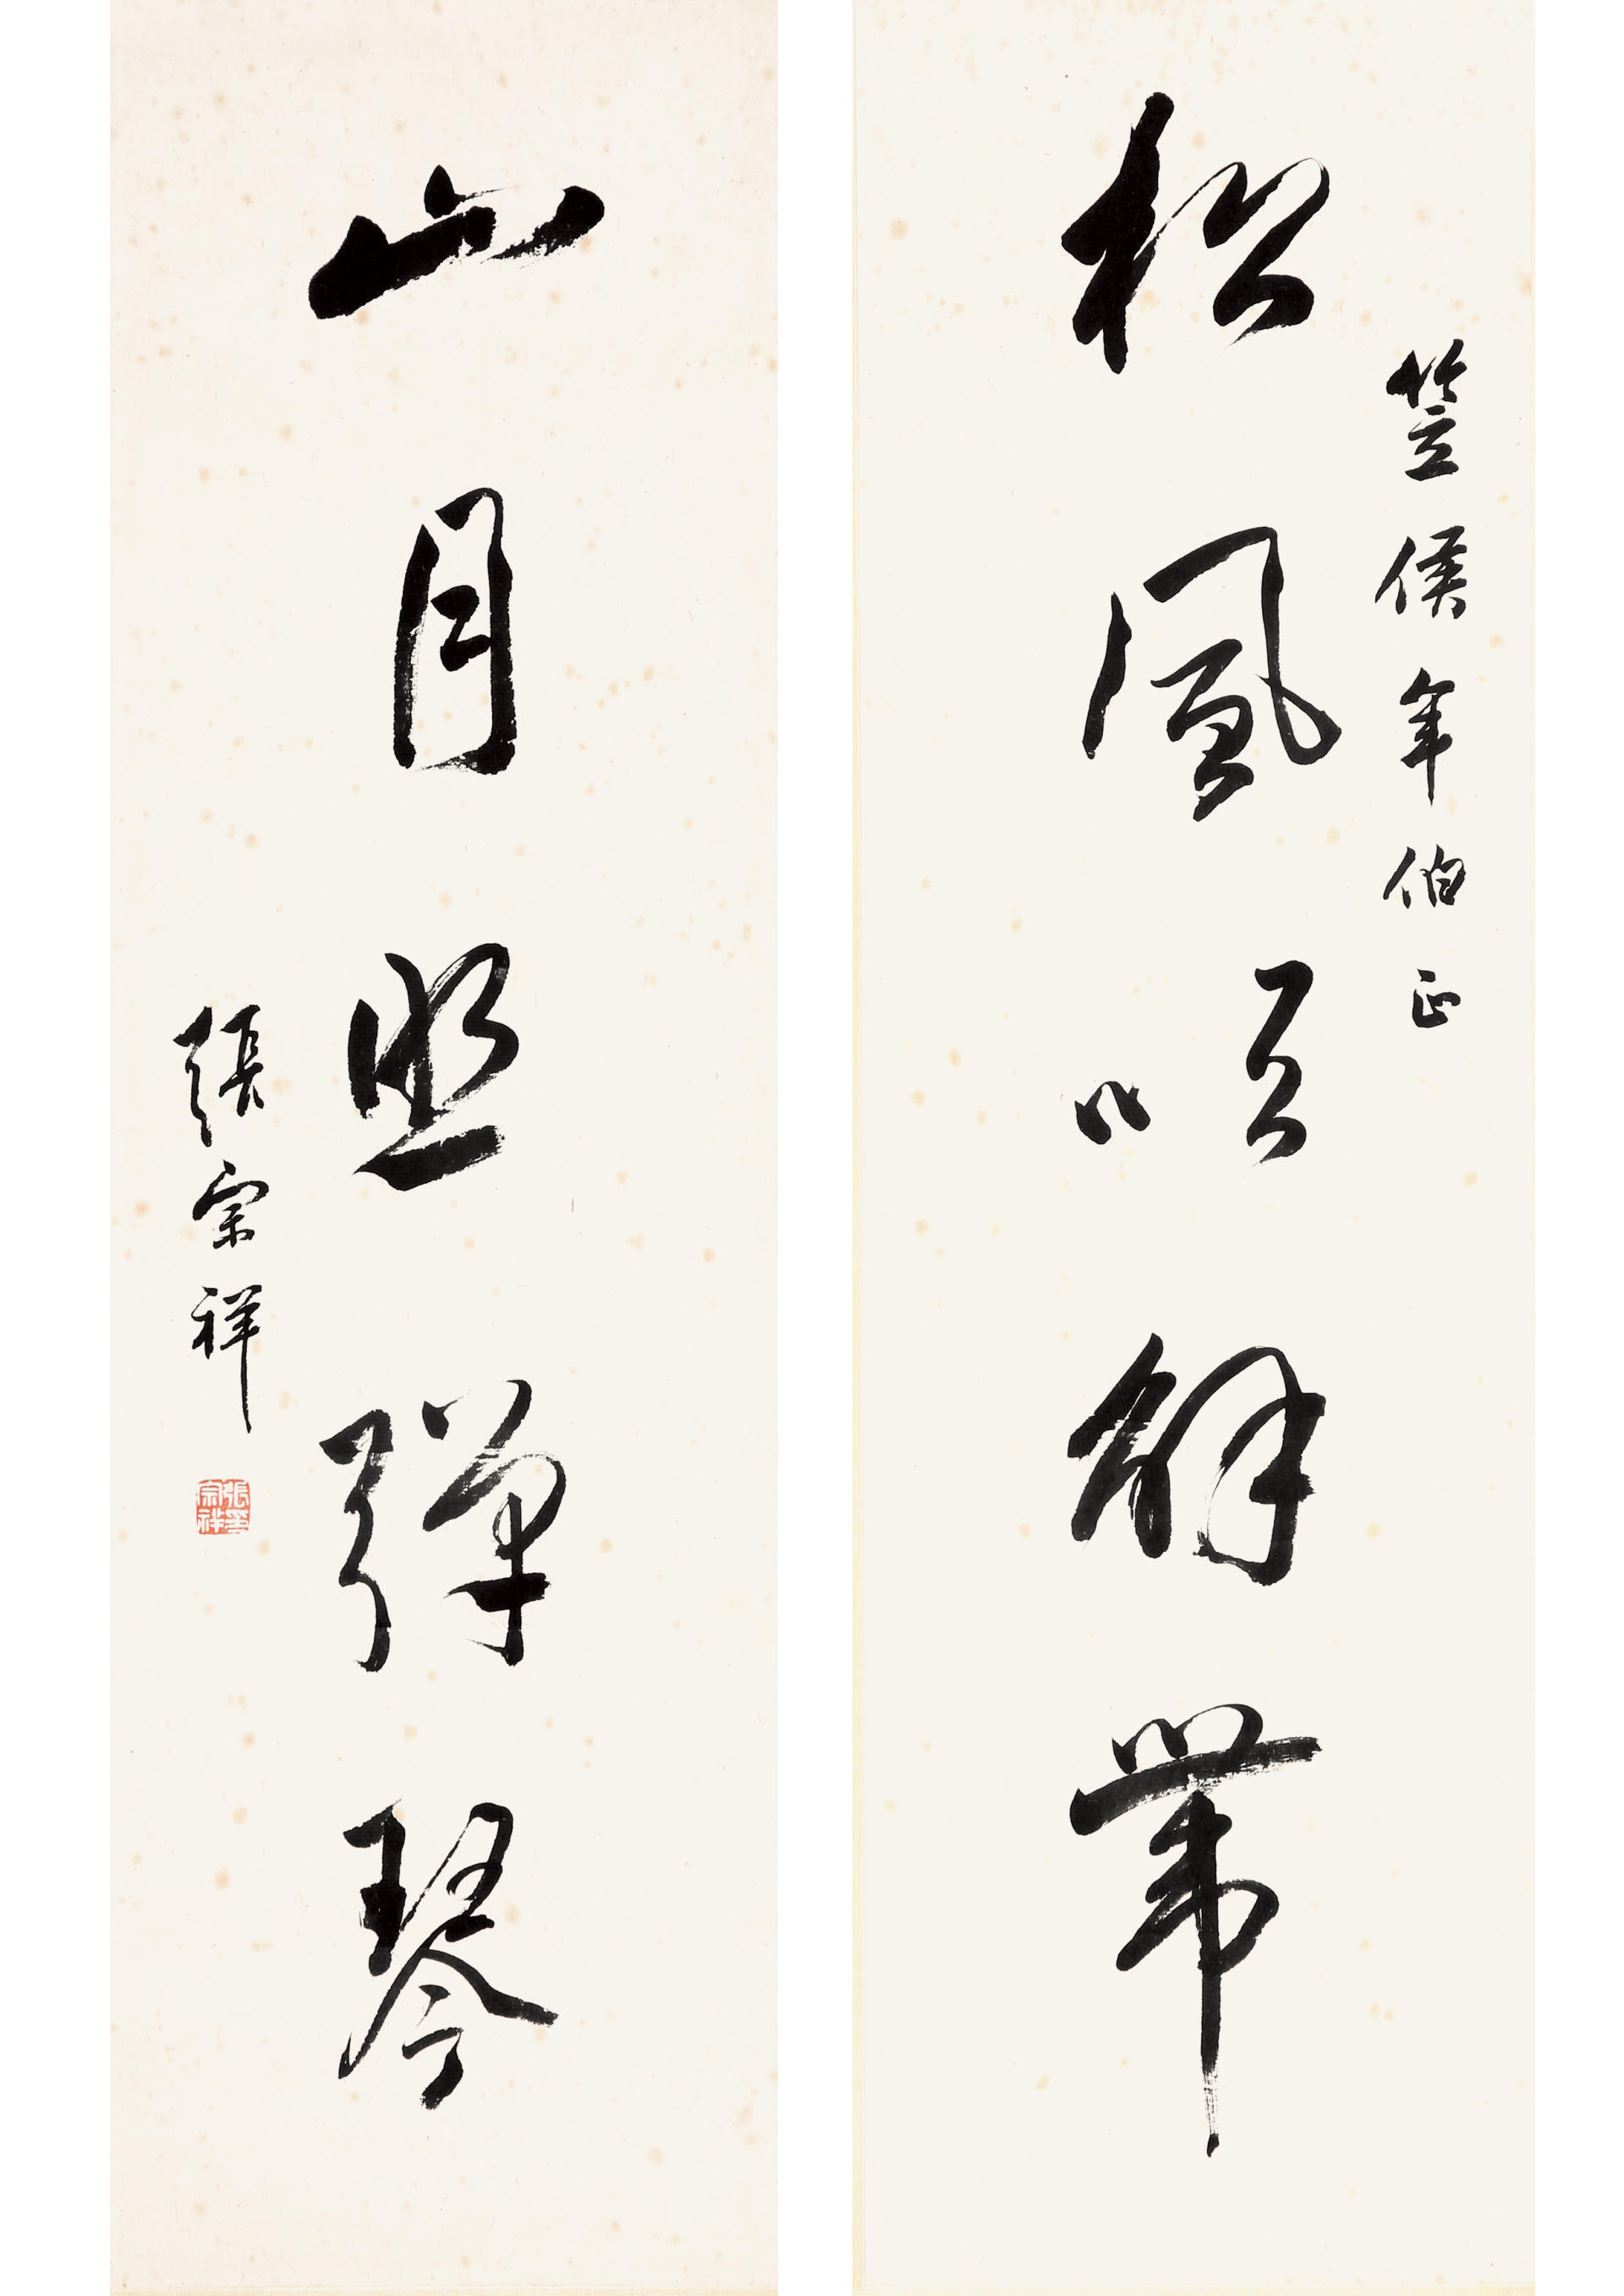 松風吹解帶
笠侯年伯正
山月照彈琴
張宗祥
張宗祥印